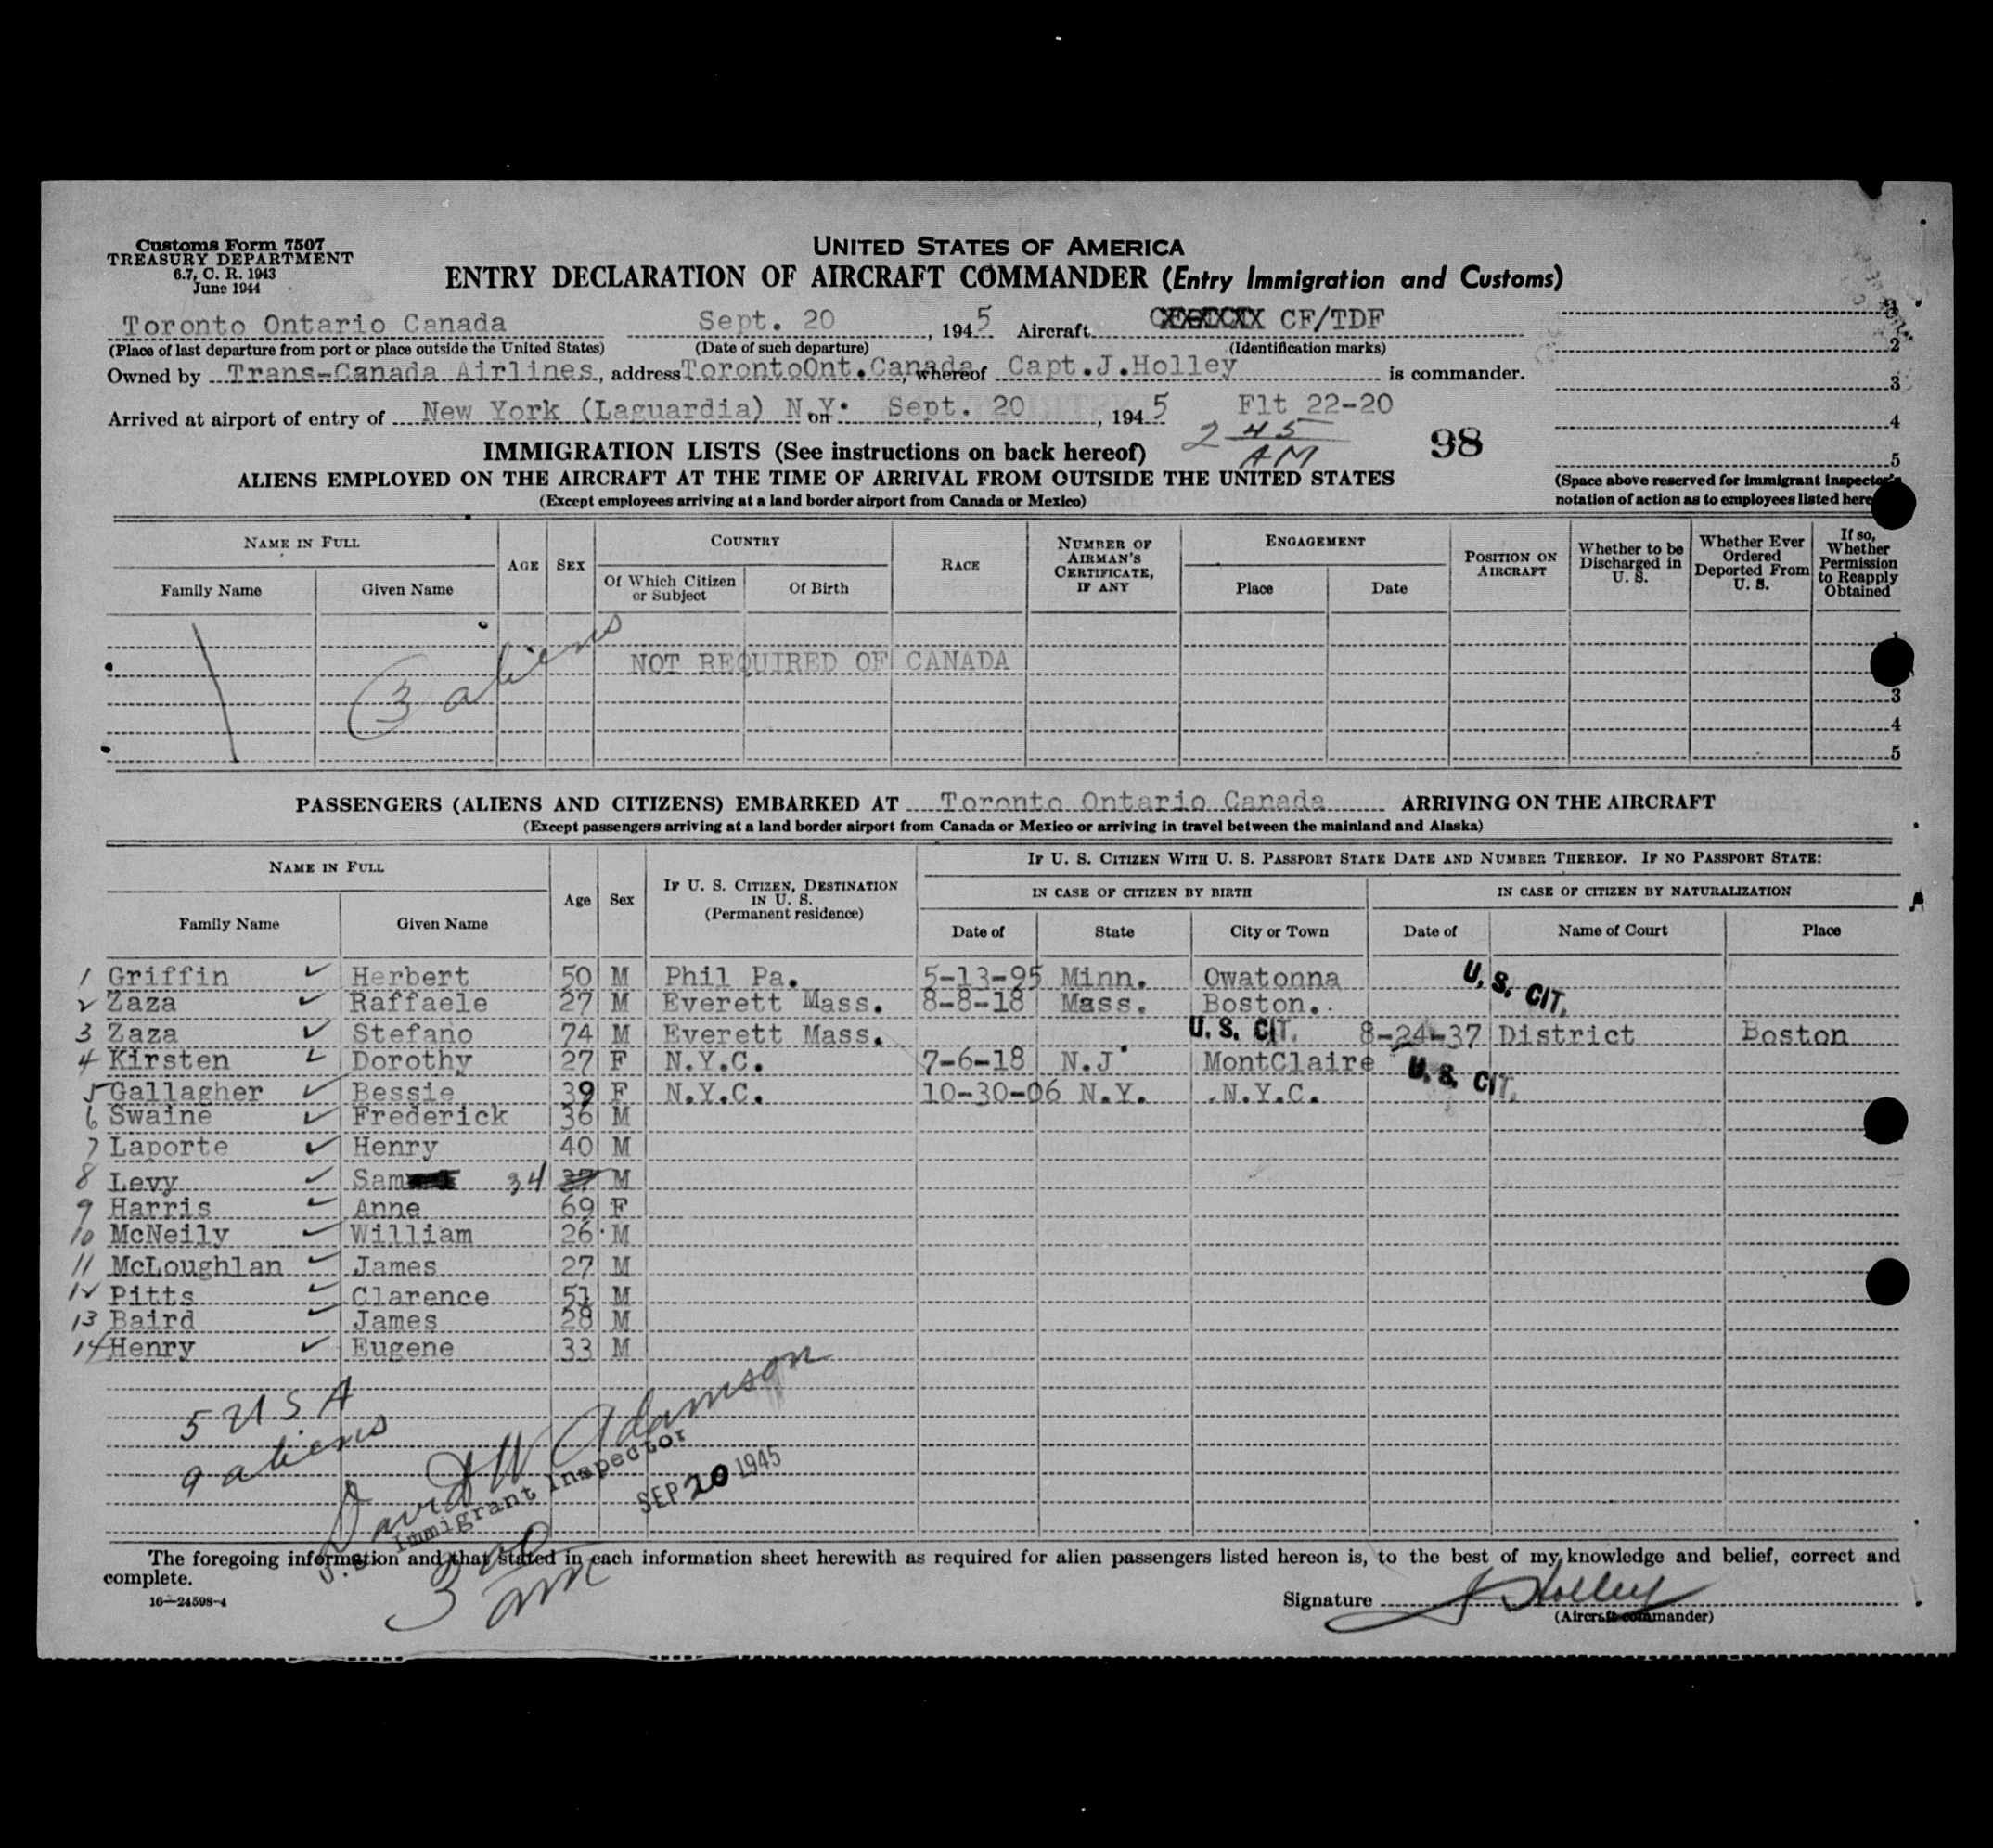 Customs Form 7507
TREASURY DEPARTMENT
6.7, C. R. 1943
June 1944
UNITED STATES OF AMERICA
ENTRY DECLARATION OF AIRCRAFT COMMANDER (Entry Immigration and Customs)
Toronto Ontario Canada Sept. 20, 1945 Aircraft CF/TDF
(Place of last departure from port or place outside the United States) (Date of such departure) (Identification marks)
Owned by Trans-Canada Airlines, address TorontoOnt.Canada, whereof Capt.J.Holley is commander.
Arrived at airport of entry of New York (Laguardia) N.Y. on Sept. 20, 1945 Flt 22-20
2 45 AM
98
1
2
3
4
5
IMMIGRATION LISTS (See instructions on back hereof)
ALIENS EMPLOYED ON THE AIRCRAFT AT THE TIME OF ARRIVAL FROM OUTSIDE THE UNITED STATES
(Except employees arriving at a land border airport from Canada or Mexico)
(Space above reserved for immigrant inspector's
notation of action as to employees listed here
NAME IN FULL
Family Name Given Name
AGE SEX
COUNTRY
Of Which Citizen or Subject Of Birth
RACE
NUMBER OF AIRMAN'S CERTIFICATE, IF ANY
ENGAGEMENT
Place Date
POSITION ON AIRCRAFT
Whether to be Discharged in U. S.
Whether Ever Ordered Deported From U. S.
If so, Whether Permission to Reapply Obtained
3 aliens
NOT REQUIRED OF CANADA
1
3
4
5
PASSENGERS (ALIENS AND CITIZENS) EMBARKED AT Toronto Ontario Canada ARRIVING ON THE AIRCRAFT
(Except passengers arriving at a land border airport from Canada or Mexico or arriving in travel between the mainland and Alaska)
NAME IN FULL
Family Name Given Name
Age Sex
IF U. S. CITIZEN, DESTINATION IN U. S. (Permanent residence)
IF U. S. CITIZEN WITH U. S. PASSPORT STATE DATE AND NUMBER THEREOF. IF NO PASSPORT STATE:
IN CASE OF CITIZEN BY BIRTH IN CASE OF CITIZEN BY NATURALIZATION
Date of State City or Town Date of Name of Court Place
1 Griffin Herbert 50 M Phil Pa. 5-13-95 Minn. Owatonna U. S. CIT.
2 Zaza Raffaele 27 M Everett Mass. 8-8-18 Mass. Boston.
3 Zaza Stefano 74 M Everett Mass. U. S. CIT. 8-24-37 District Boston
4 Kirsten Dorothy 27 F N.Y.C. 7-6-18 N.J MontClaire U. S. CIT.
5 Gallagher Bessie 39 F N.Y.C. 10-30-06 N.Y. N.Y.C.
6 Swaine Frederick 36 M
7 Laporte Henry 40 M
8 Levy Sam 34 37 M
9 Harris Anne 69 F
10 McNeily William 26 M
11 McLoughlan James 27 M
12 Pitts Clarence 51 M
13 Baird James 28 M
14 Henry Eugene 33 M
5 USA
9 aliens
David W Adamson
U.S. Immigrant Inspector
SEP 20 1945
3 00 AM
The foregoing information and that stated in each information sheet herewith as required for alien passengers listed hereon is, to the best of my knowledge and belief, correct and
complete.
16—24598-4
Signature J Holley
(Aircraft commander)